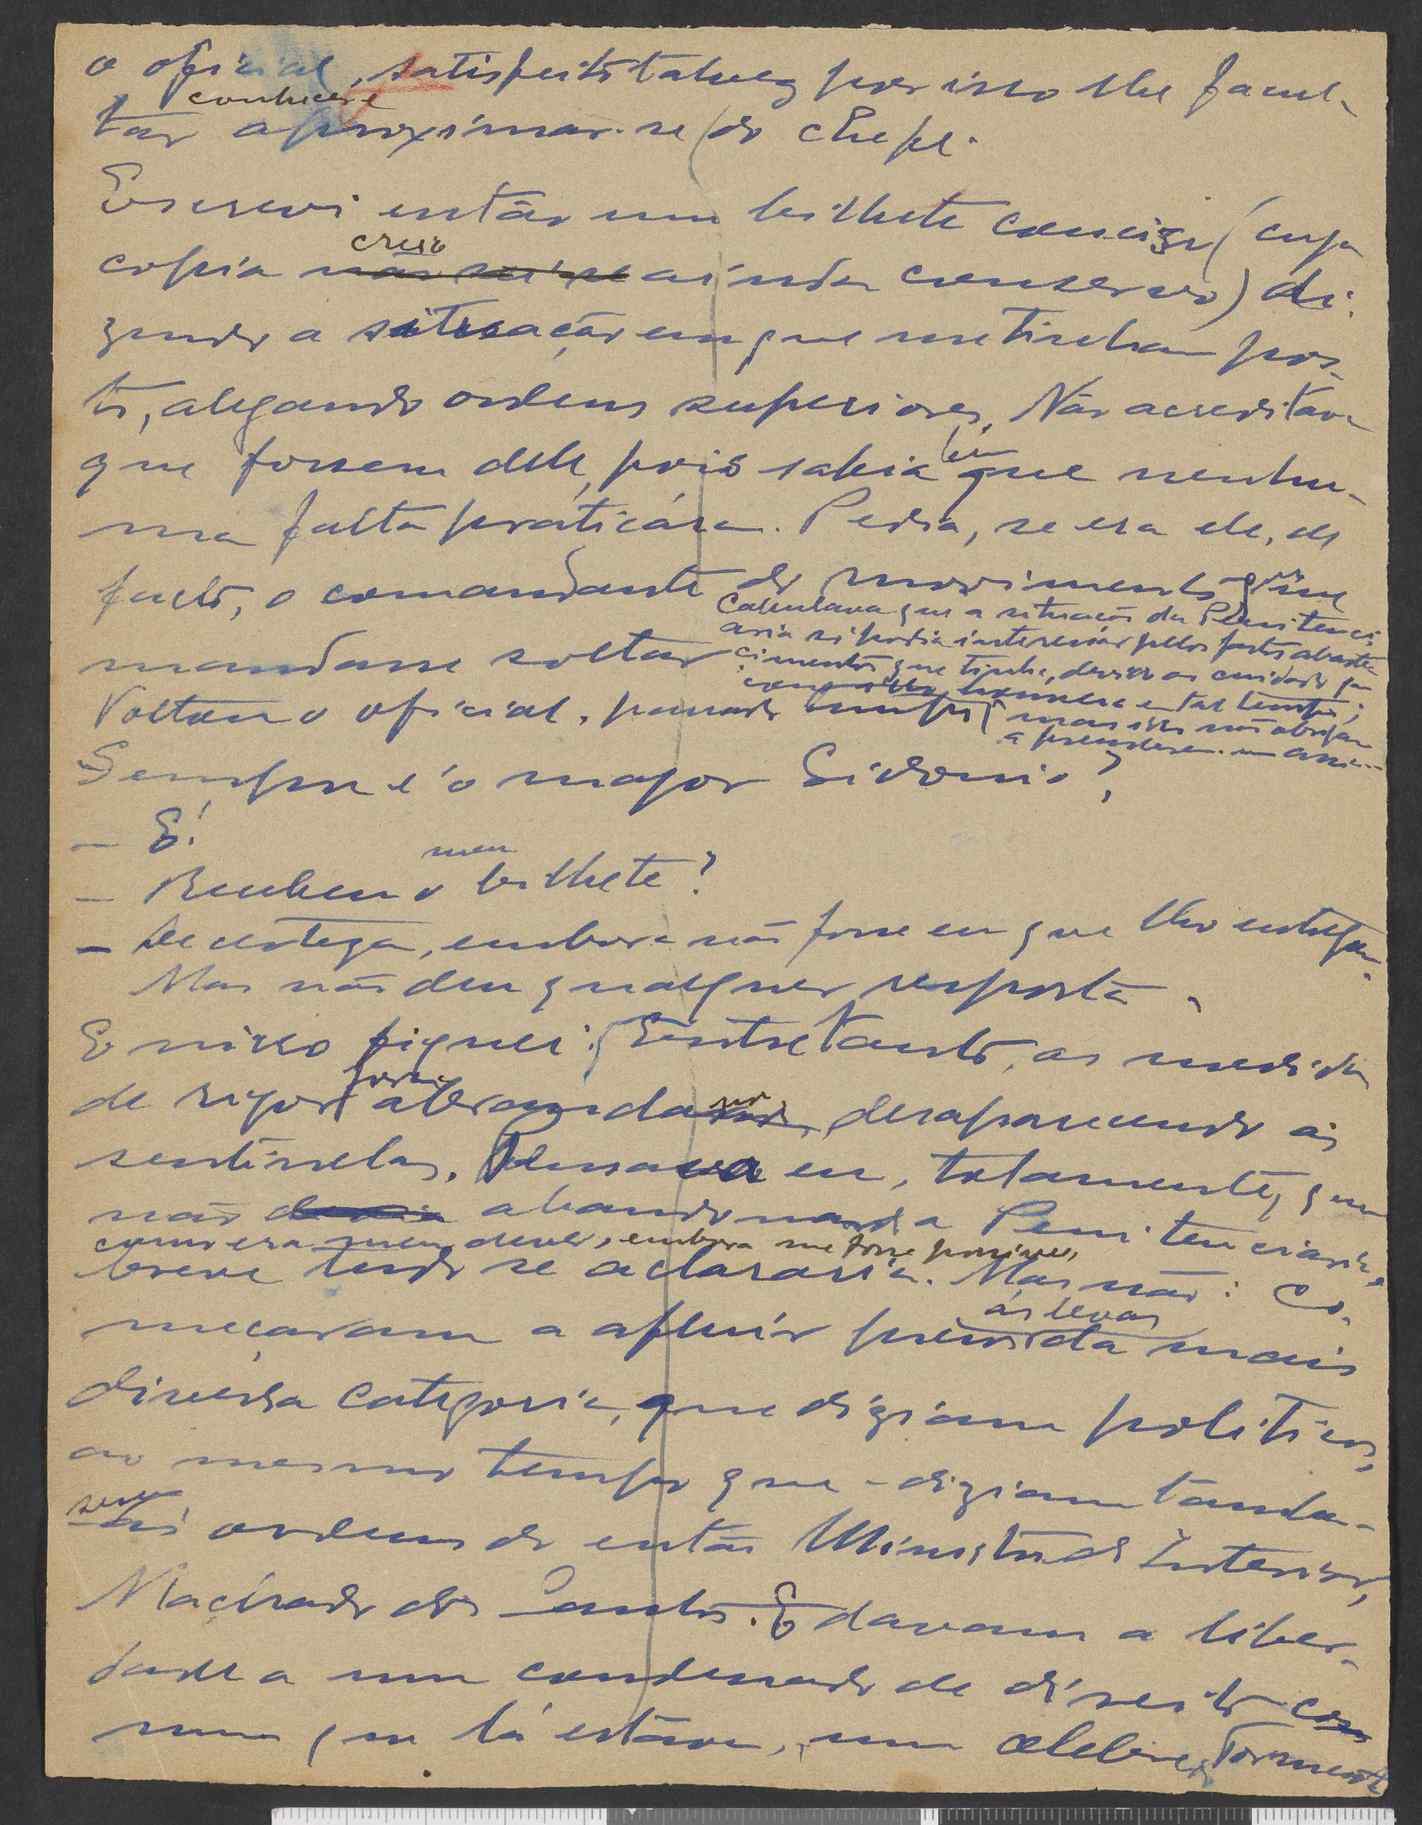 o oficial, satisfeito talvez por isso lhe facul-
conhecer e
tar aproximar-se do chefe.
Escrevi então um bilhete conciso (cuja
creio
copia não sei se ainda conservo) di-
zendo a situação em que me tinham pos-
to, alegando ordens superiores. Não acreditava
bem
que fossem dele, pois sabia que nenhu-
ma falta praticára. Pedia, se era ele, de
facto, o comandante do movimento que me
Calculava que a situação da Penitenci-
aria só podia interessar pelos fartos abaste-
mandasse soltar
cimentos que tinha, devido ao cuidado que
houvera em tal tempo;
Voltou o oficial, passado tempo
mas isso não obrigava
a prenderem-me assim...
Sempre é o major Sidonio?
— É!
meu
— Recebeu o bilhete?
— De certeza, embora não fosse eu que lho entregou.
Mas não deu qualquer resposta.
E nisso fiquei. Entretanto, as medidas
foram
de rigor abrandando, desaparecendo as
sentinelas. Pensava eu, tolamente, que
não devia abandonar a Penitenciaria,
como era meu dever, embora me fosse possivel,
breve tudo se aclararia. Mas não: Co-
as levas
meçaram a afluir presos da mais
diversa categoria, que diziam politicos,
ao mesmo tempo que - diziam tambem
sempre
ás ordens do então Ministro do Interior,
Machado dos Santos. E davam a liber-
dade a um condenado de direito com
mum que lá estava, um celebre Tormenta